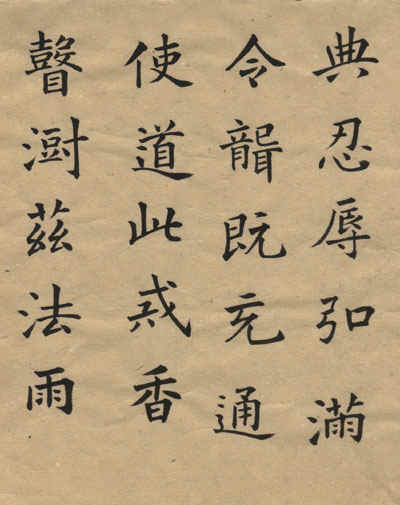 典忍辱弘滿
令聾既充通
使道此戒香
瞽澍茲法雨